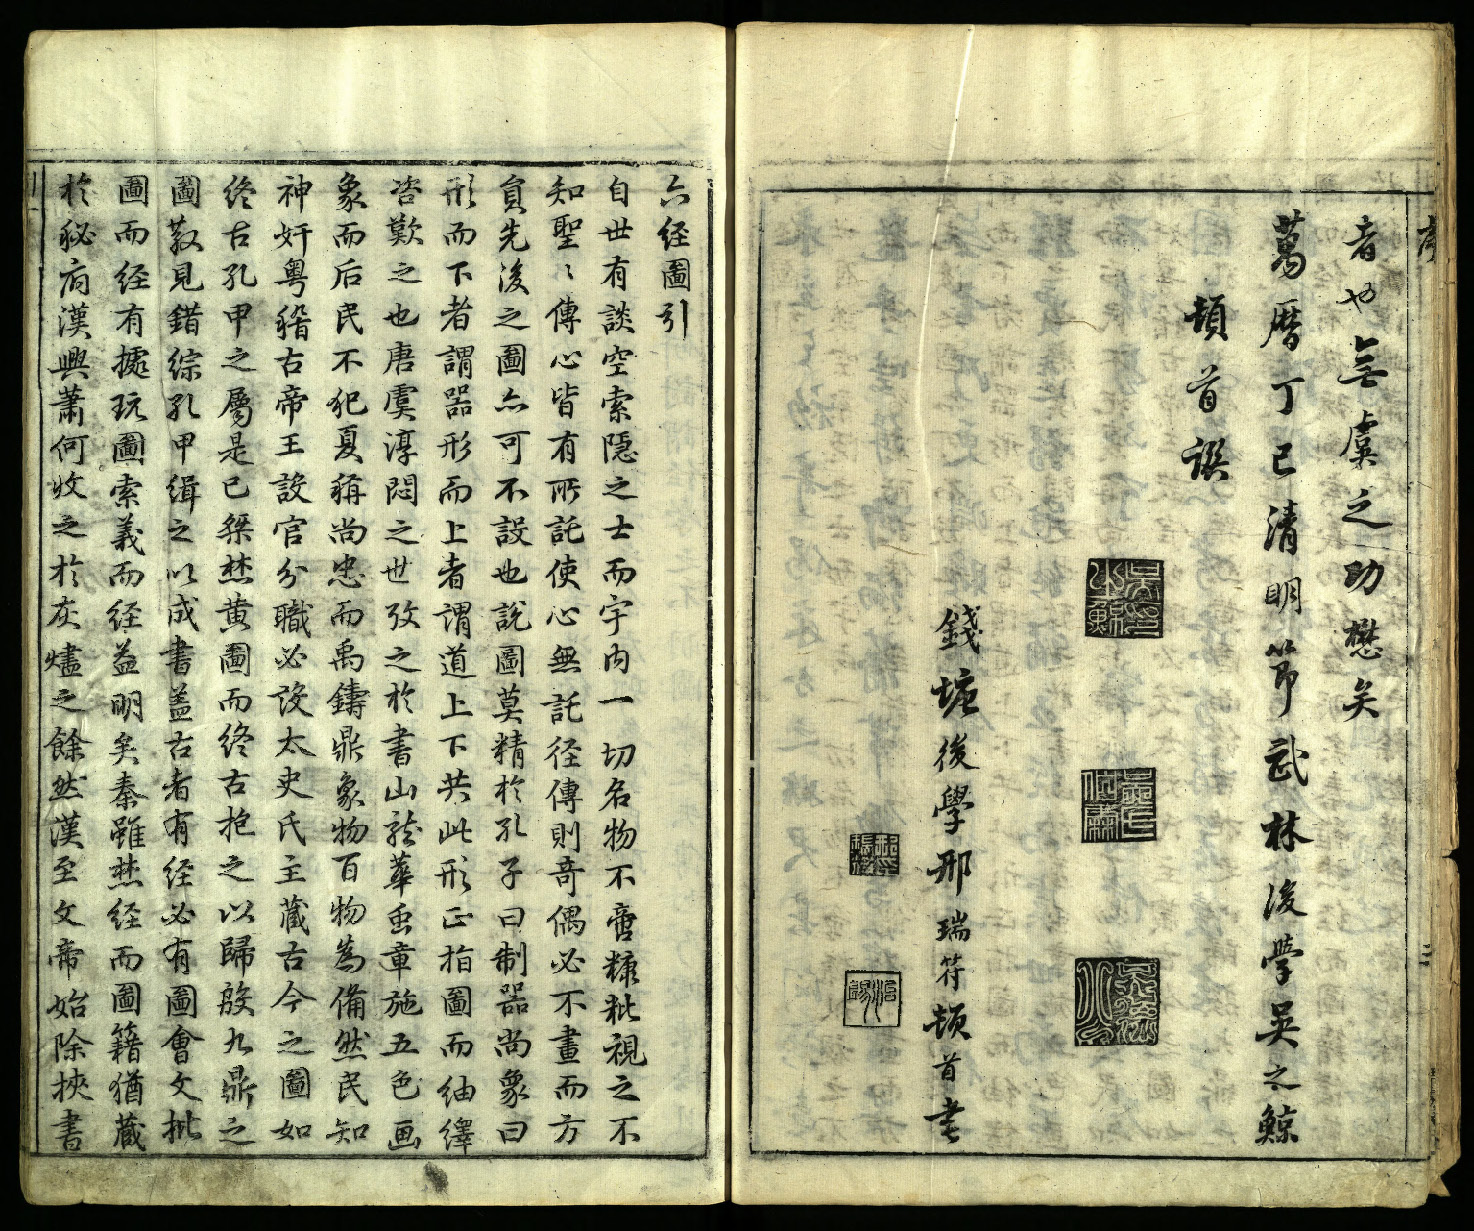 者也無虞之功懋矣
萬曆丁巳清明節武林後學吳之鯨
頓首譔
錢塘後學邢瑞符頓首書
六経圖引
自世有談空索隠之士而宇內一切名物不啻糠粃視之不
知聖〻傳心皆有所託使心無託径傳則竒偶必不畫而方
負先後之圖亦可不設也說圖莫精於孔子曰制器尚象曰
形而下者謂器形而上者謂道上下共此形正指圖而䌷繹
咨歎之也唐虞淳悶之世攷之於書山龍華虫章施五色画
象而后民不犯夏稱尚忠而禹鑄鼎象物百物為備然民知
神奸粤稽古帝王設官分職必設太史氏主藏古今之圖如
終古孔甲之屬是已桀焚黄圖而終古抱之以歸殷九鼎之
圖散見錯綜孔甲緝之以成書盖古者有経必有圖會文批
圖而経有據玩圖索義而経益明矣秦雖焚経而圖籍猶藏
於秘府漢興蕭何收之於灰燼之餘然漢至文帝始除挾書